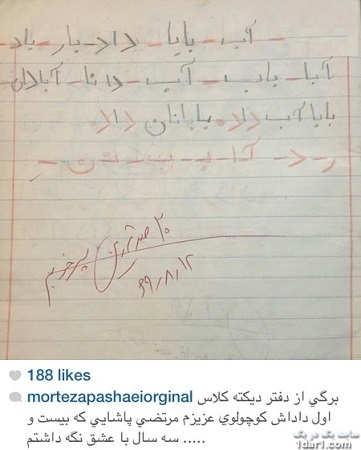 آب - بابا - داد - بار - باد
آبا - باب - آب - دانا - آبادان
بابا آب داد. بابا نان داد
ر - د - آ ا - ب - ن -
۲۰ صد آفرین پسر خوبم
۶۹/۸/۱۲
188 likes
mortezapashaeiorginal برگي از دفتر ديكته كلاس
اول داداش كوچولوي عزيزم مرتضي پاشايي كه بيست و
سه سال با عشق نگه داشتم .....
سایت یک در یک
1dar1.com